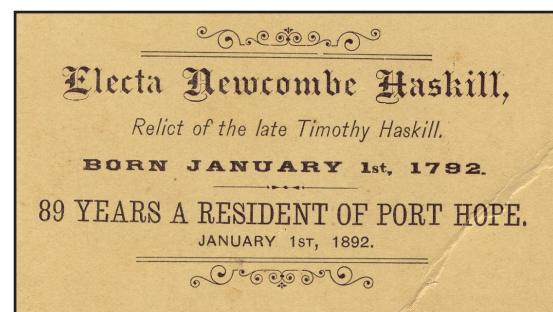 Electa Newcombe Haskill,
Relict of the late Timothy Haskill.
BORN JANUARY 1st, 1792.
89 YEARS A RESIDENT OF PORT HOPE.
JANUARY 1ST, 1892.